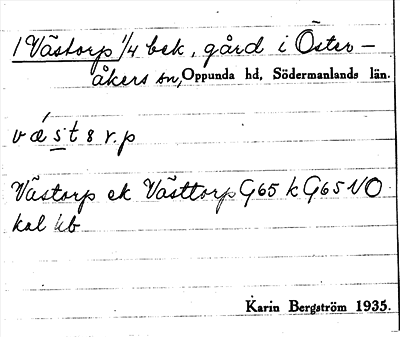 1 Västorp 1/4 bek, gård i Öster-
åkers sn, Oppunda hd, Södermanlands län.
vásts r.p
Västorp ek Västtorp G65 k G65 NO
kal kb
Karin Bergström 1935.